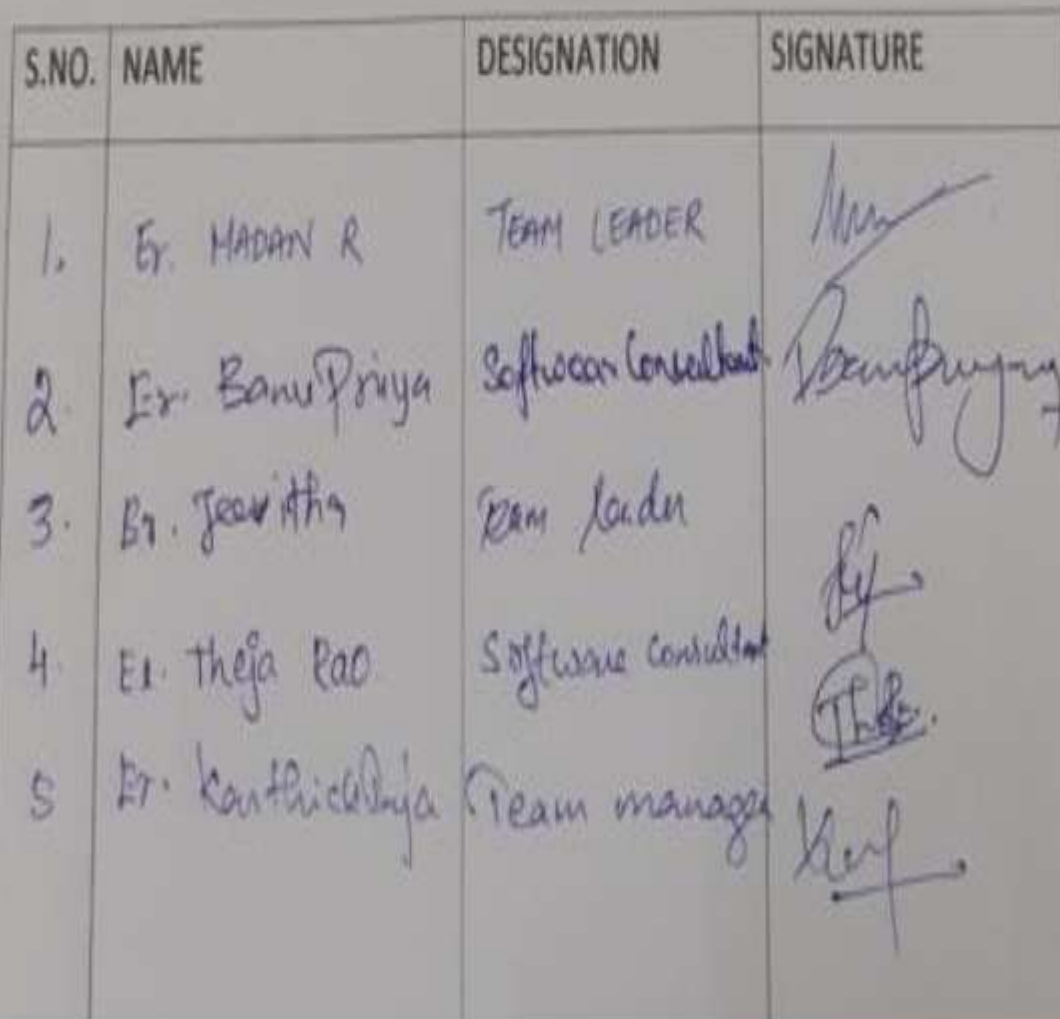 S.NO. NAME DESIGNATION SIGNATURE
1. Er. MADAN R TEAM LEADER
2. Er. BanuPriya Software Consultant Banupriya
3. Er. Jeevitha Team leader
4. Er. Theja Rao Software Consultant
5 Er. KarthickRaja Team manager